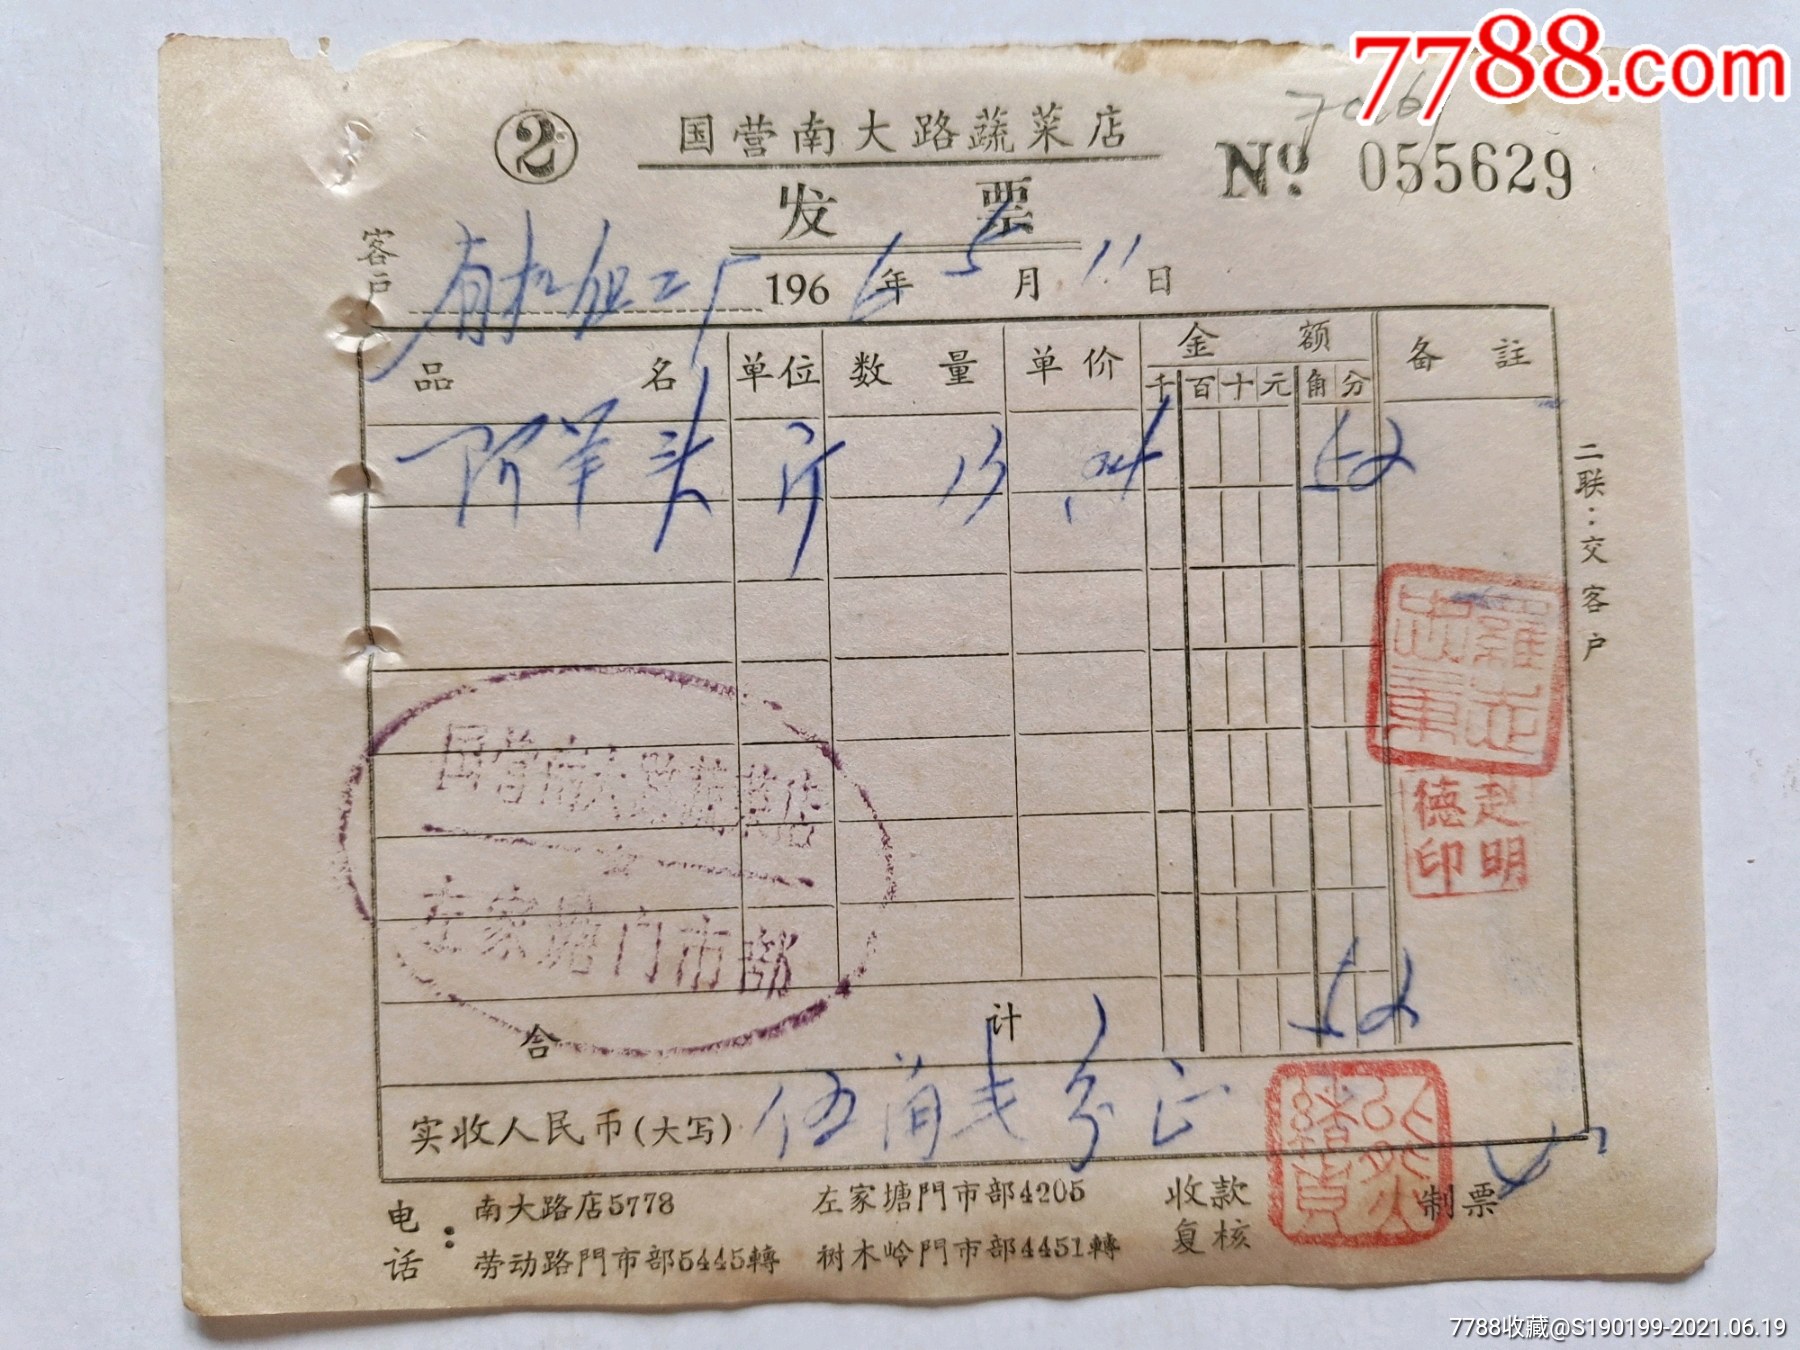 7788.com
②
国营南大路蔬菜店
发票
№ 055629
客户
196 6 年 5 月 11 日
品名 单位 数量 单价 金额 备註
千 百 十 元 角 分
斤 13 .04 52
二联：交客户
国营南大路蔬菜店
左家塘门市部
赵明德印
合计 52
实收人民币(大写) 伍角弍分正
电话：
南大路店5778 左家塘門市部4205
劳动路門市部5445轉 树木岭門市部4451轉
收款
复核
制票
7788收藏@S190199-2021.06.19